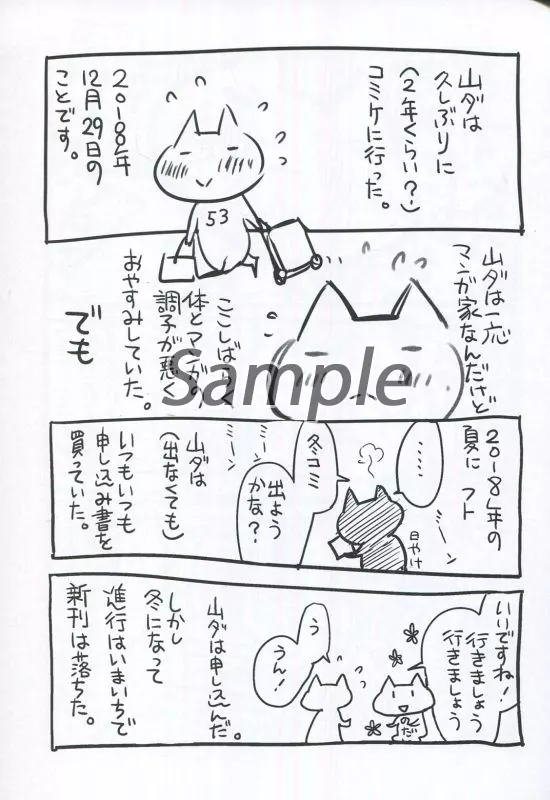 山ダは
久しぶりに
(2年くらい?)
コミケに行った。
53
2018年
12月29日の
ことです。
山ダは一応
マンガ家なんだけど
ここしばらく
体とマンガの
調子が悪く
おやすみしていた。
でも
2018年の
夏に フト
……
ミーン
日やけ
冬コミ
出ょう
かな?
ミーン
ミーン
山ダは
(出なくても)
いつもいつも
申し込み書を
買っていた。
いいですね!
行きましょう
行きましょう
のだ
う
うん!
山ダは申し込んだ。
しかし
冬になって
進行はいまいちで
新刊は落ちた。
Sample